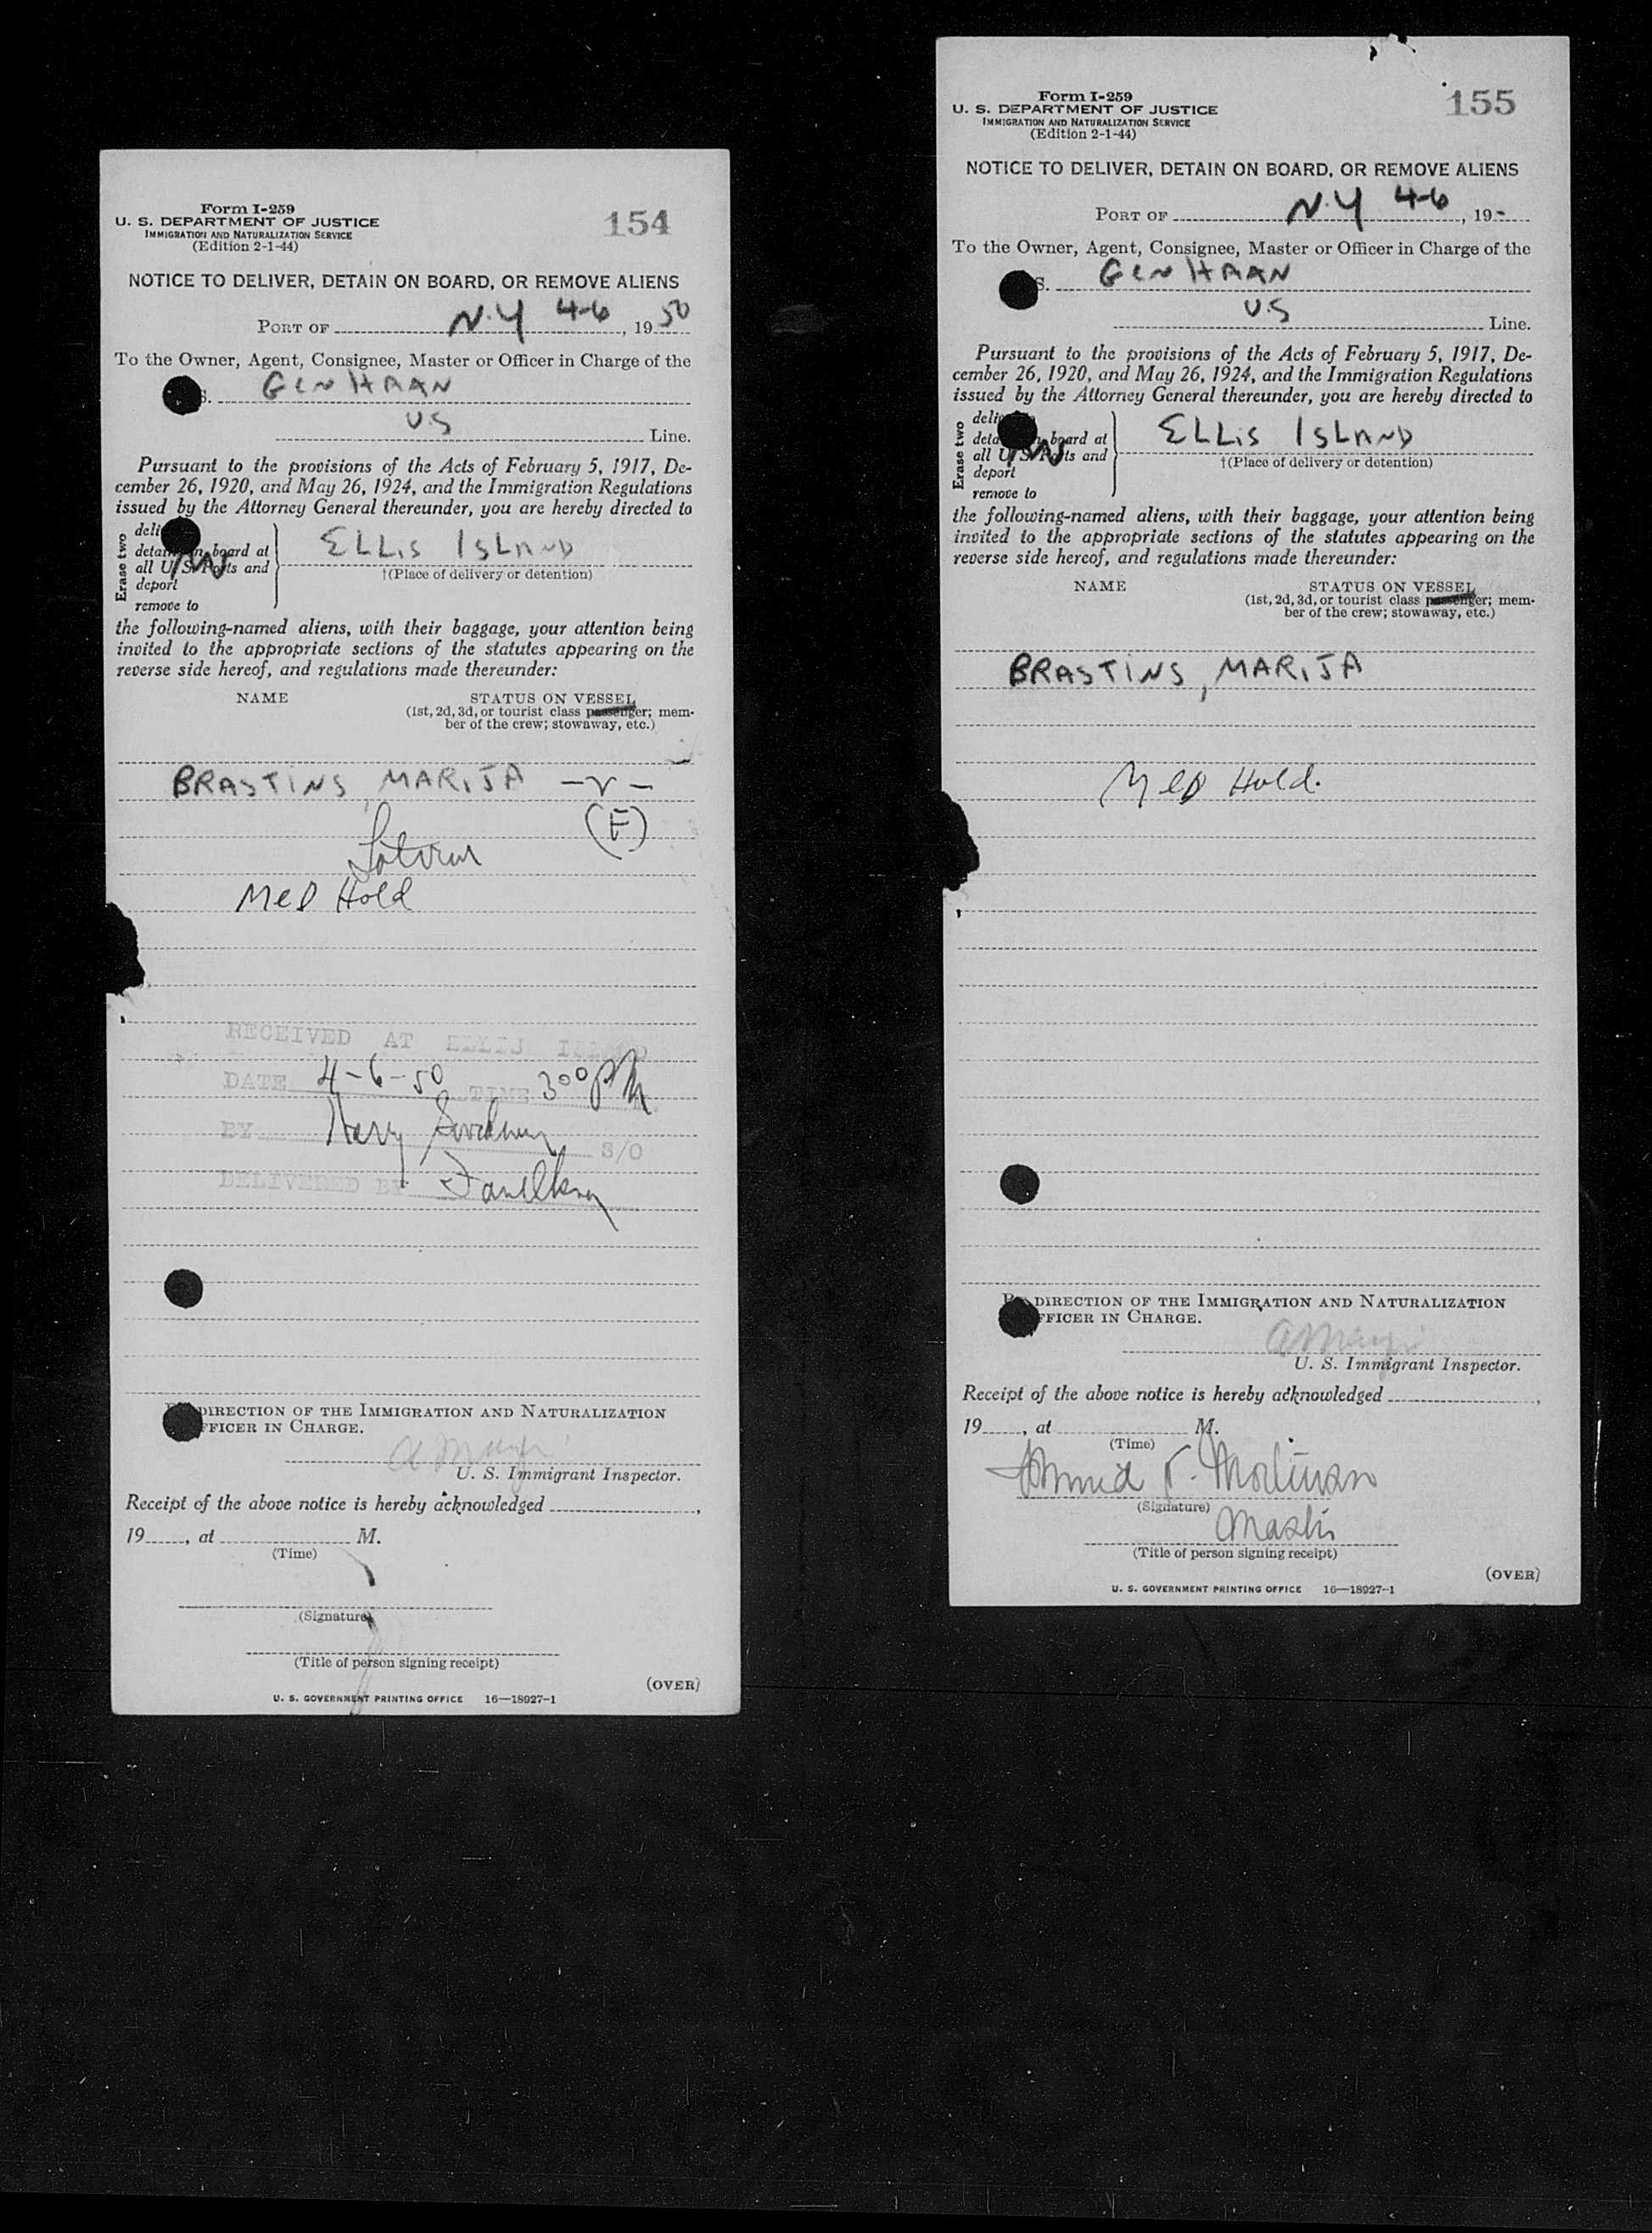 Form I-259
U. S. DEPARTMENT OF JUSTICE
IMMIGRATION AND NATURALIZATION SERVICE
(Edition 2-1-44)
154
NOTICE TO DELIVER, DETAIN ON BOARD, OR REMOVE ALIENS
PORT OF N.Y 4-6, 1950
To the Owner, Agent, Consignee, Master or Officer in Charge of the
S. GEN HAAN
US Line.
Pursuant to the provisions of the Acts of February 5, 1917, De-
cember 26, 1920, and May 26, 1924, and the Immigration Regulations
issued by the Attorney General thereunder, you are hereby directed to
Erase two
deli
detain on board at
all U. S. Ports and
deport
remove to
ELLIS ISLAND
†(Place of delivery or detention)
the following-named aliens, with their baggage, your attention being
invited to the appropriate sections of the statutes appearing on the
reverse side hereof, and regulations made thereunder:
NAME STATUS ON VESSEL
(1st, 2d, 3d, or tourist class passenger; mem-
ber of the crew; stowaway, etc.)
BRASTINS, MARIJA —r—
(F)
Med Hold
RECEIVED AT ELLIS ISLAND
DATE 4-6-50 TIME 3 00 PM
BY Harry S/O
DELIVERED BY Faulkner
DIRECTION OF THE IMMIGRATION AND NATURALIZATION
FFICER IN CHARGE.
U. S. Immigrant Inspector.
Receipt of the above notice is hereby acknowledged ,
19 , at M.
(Time)
(Signature)
(Title of person signing receipt)
(OVER)
U. S. GOVERNMENT PRINTING OFFICE 16—18927-1
Form I-259
U. S. DEPARTMENT OF JUSTICE
IMMIGRATION AND NATURALIZATION SERVICE
(Edition 2-1-44)
155
NOTICE TO DELIVER, DETAIN ON BOARD, OR REMOVE ALIENS
PORT OF N.Y 4-6, 19-
To the Owner, Agent, Consignee, Master or Officer in Charge of the
S. GEN HAAN
US Line.
Pursuant to the provisions of the Acts of February 5, 1917, De-
cember 26, 1920, and May 26, 1924, and the Immigration Regulations
issued by the Attorney General thereunder, you are hereby directed to
Erase two
deli
deta n board at
all U. S. Ports and
deport
remove to
ELLIS ISLAND
†(Place of delivery or detention)
the following-named aliens, with their baggage, your attention being
invited to the appropriate sections of the statutes appearing on the
reverse side hereof, and regulations made thereunder:
NAME STATUS ON VESSEL
(1st, 2d, 3d, or tourist class passenger; mem-
ber of the crew; stowaway, etc.)
BRASTINS, MARIJA
Med Hold.
DIRECTION OF THE IMMIGRATION AND NATURALIZATION
FFICER IN CHARGE.
U. S. Immigrant Inspector.
Receipt of the above notice is hereby acknowledged ,
19 , at M.
(Time)
(Signature)
(Title of person signing receipt)
(OVER)
U. S. GOVERNMENT PRINTING OFFICE 16—18927-1